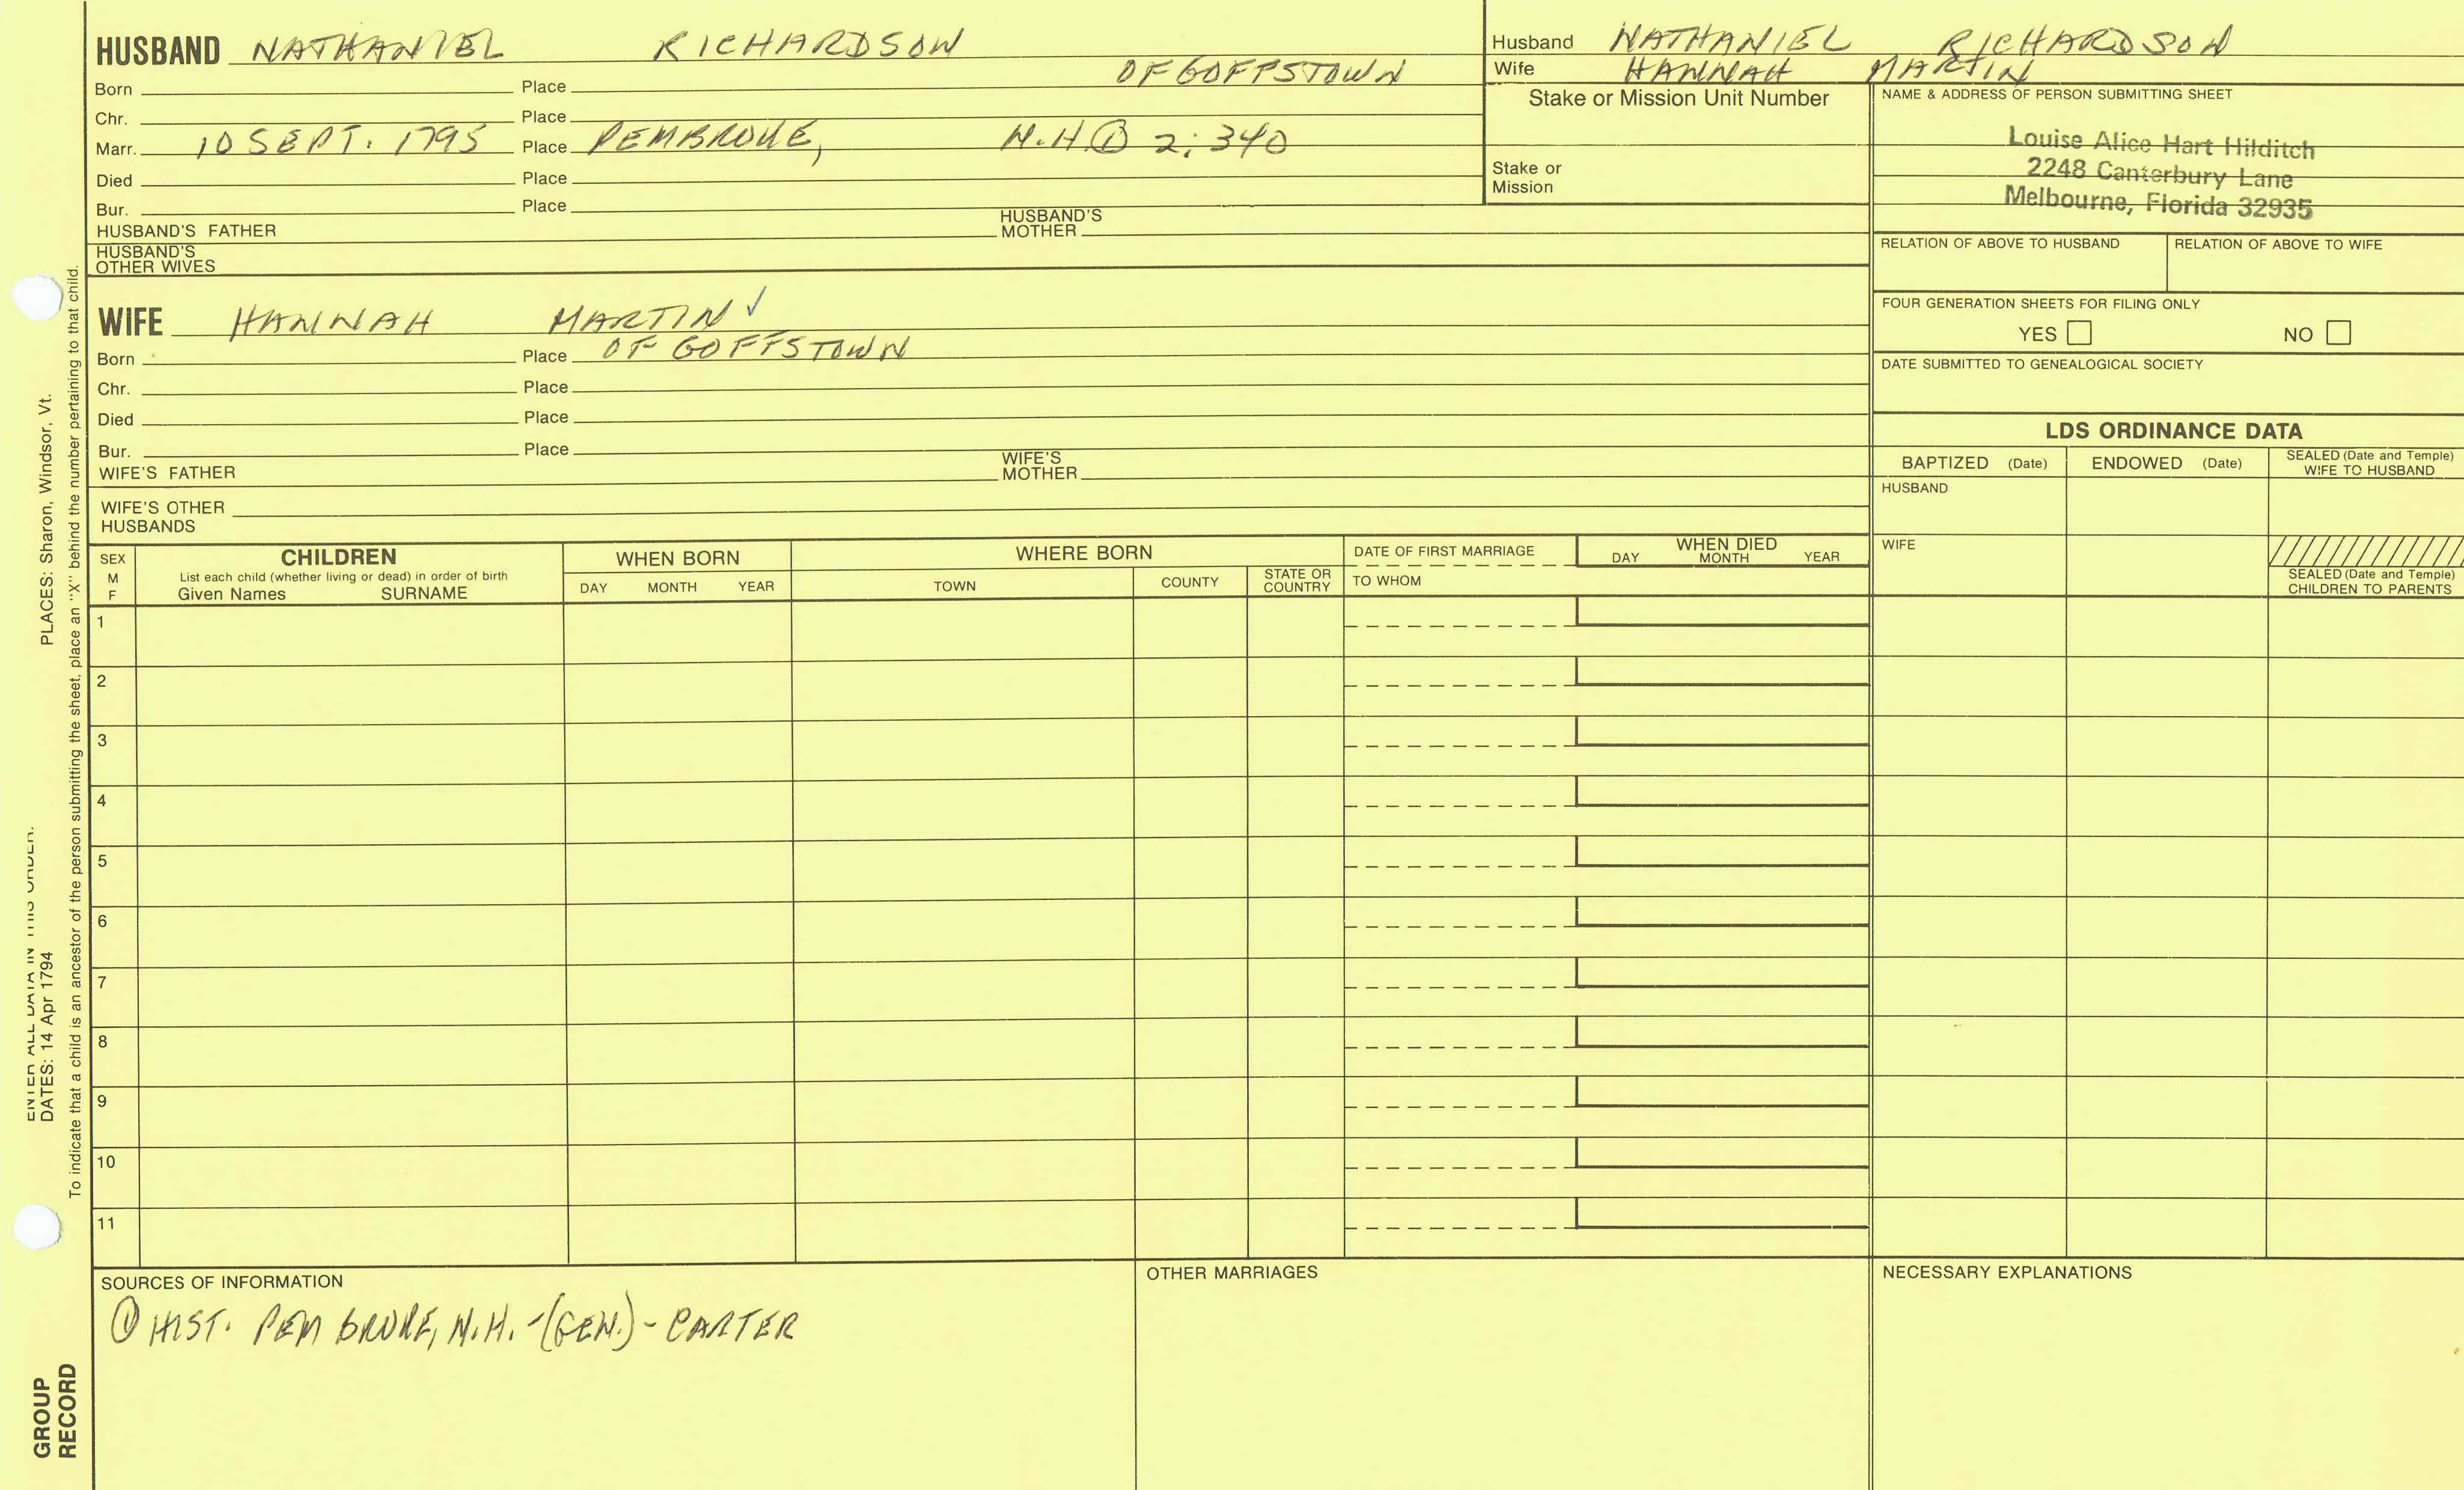 HUSBAND NATHANIEL RICHARDSON
OF GOFFSTOWN
Born Place
Chr. Place
Marr. 10 SEPT. 1795 Place PEMBROKE, N.H. ① 2:340
Died Place
Bur. Place
HUSBAND'S FATHER HUSBAND'S MOTHER
HUSBAND'S
OTHER WIVES
Husband NATHANIEL RICHARDSON
Wife HANNAH MARTIN
Stake or Mission Unit Number
Stake or
Mission
NAME & ADDRESS OF PERSON SUBMITTING SHEET
Louise Alice Hart Hilditch
2248 Canterbury Lane
Melbourne, Florida 32935
RELATION OF ABOVE TO HUSBAND RELATION OF ABOVE TO WIFE
FOUR GENERATION SHEETS FOR FILING ONLY
YES NO
DATE SUBMITTED TO GENEALOGICAL SOCIETY
WIFE HANNAH MARTIN ✓
Born Place OF GOFFSTOWN
Chr. Place
Died Place
Bur. Place
WIFE'S FATHER WIFE'S MOTHER
WIFE'S OTHER
HUSBANDS
LDS ORDINANCE DATA
BAPTIZED (Date) ENDOWED (Date) SEALED (Date and Temple) WIFE TO HUSBAND
HUSBAND
WIFE
SEALED (Date and Temple)
CHILDREN TO PARENTS
SEX
M
F
CHILDREN
List each child (whether living or dead) in order of birth
Given Names SURNAME
WHEN BORN
DAY MONTH YEAR
WHERE BORN
TOWN COUNTY STATE OR COUNTRY
DATE OF FIRST MARRIAGE
TO WHOM
WHEN DIED
DAY MONTH YEAR
1
2
3
4
5
6
7
8
9
10
11
SOURCES OF INFORMATION
① HIST. PEMBROKE, N.H. - (GEN.) - CARTER
OTHER MARRIAGES
NECESSARY EXPLANATIONS
ENTER ALL DATA IN THIS ORDER.
DATES: 14 Apr 1794 PLACES: Sharon, Windsor, Vt.
To indicate that a child is an ancestor of the person submitting the sheet, place an "X" behind the number pertaining to that child.
GROUP
RECORD